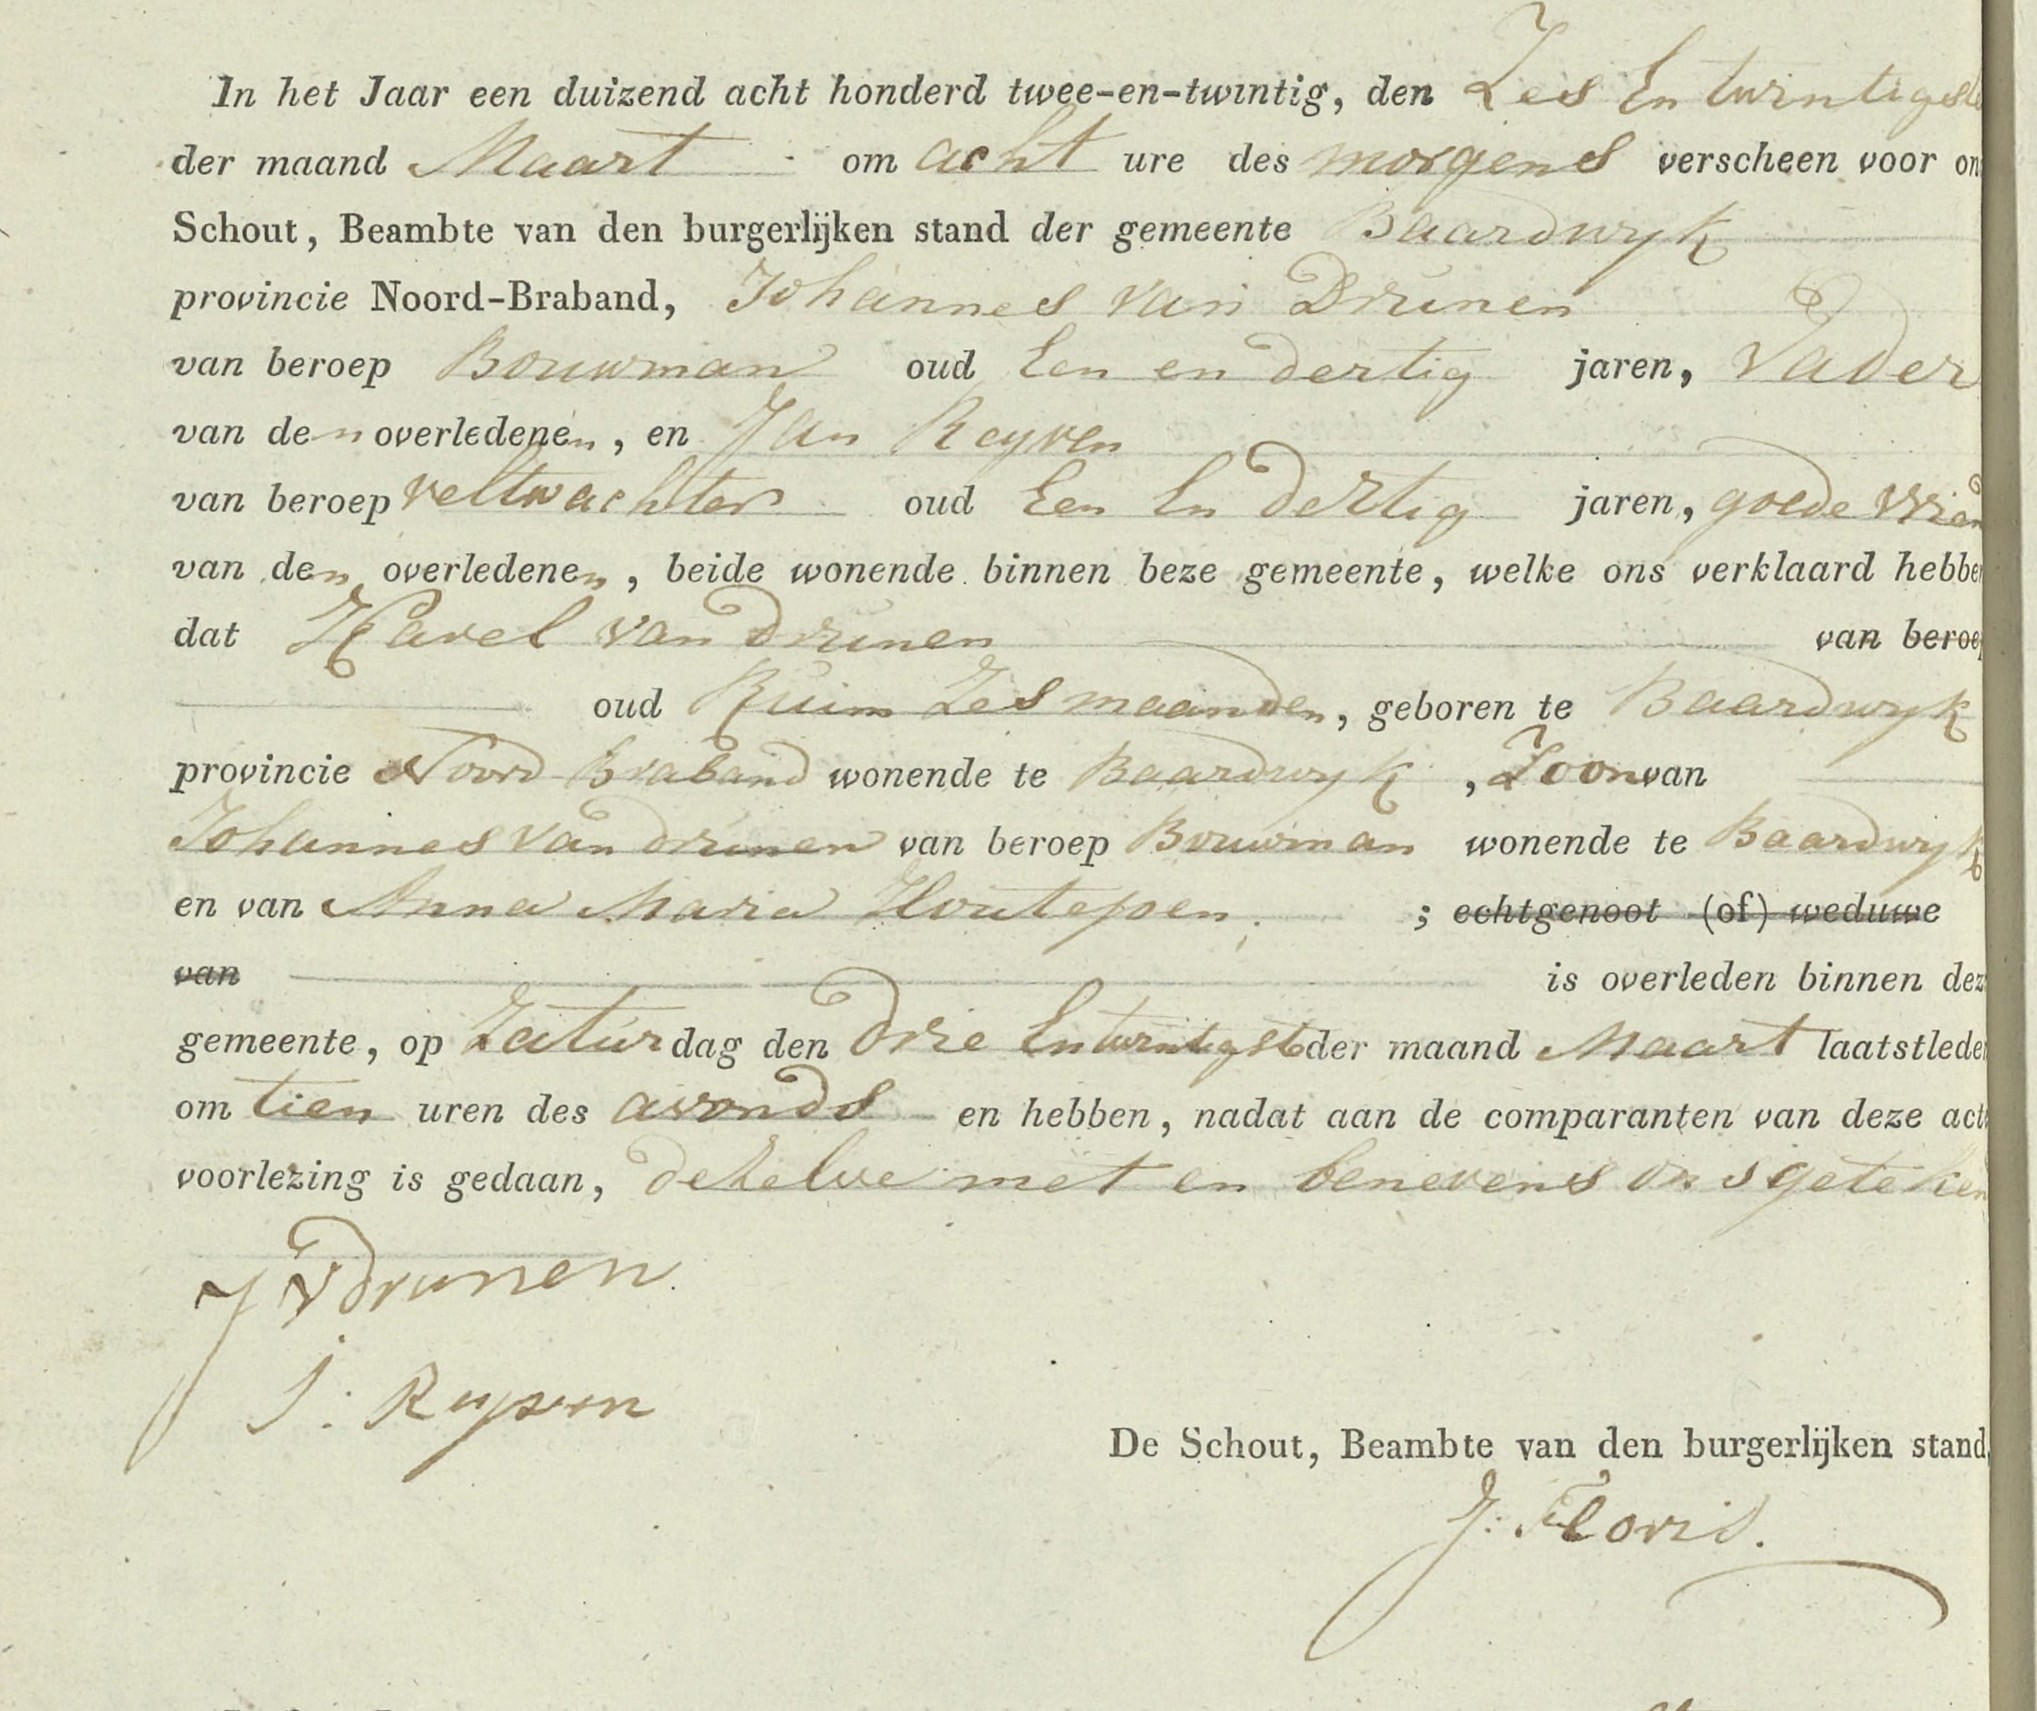 In het Jaar een duizend acht honderd twee-en-twintig, den Zes En twintigste
der maand Maart om acht ure des morgens verscheen voor on
Schout, Beambte van den burgerlijken stand der gemeente Baardwyk
provincie Noord-Braband, Johannes van Drunen
van beroep Bouwman oud Een en dertig jaren, Vader
van den overledenen, en Jan Reyven
van beroep veltwachter oud Een En dertig jaren, goede vrien
van den overledenen, beide wonende binnen beze gemeente, welke ons verklaard hebben
dat Karel van Drunen van beroep
oud Ruim Zes maanden, geboren te Baardwyk
provincie Noord Braband wonende te Baardwyk, Zoon van
Johannes van drunen van beroep Bouwman wonende te Baardwyk
en van Anna Maria Houtepen, ; echtgenoot (of) weduwe
van is overleden binnen dez
gemeente, op Zaturdag den Drie En twintigste der maand Maart laatstleden
om tien uren des avonds en hebben, nadat aan de comparanten van deze acte
voorlezing is gedaan, dezelve met en benevens ons geteken
J V Drunen
J: Ryven
De Schout, Beambte van den burgerlijken stand,
J: Floris.